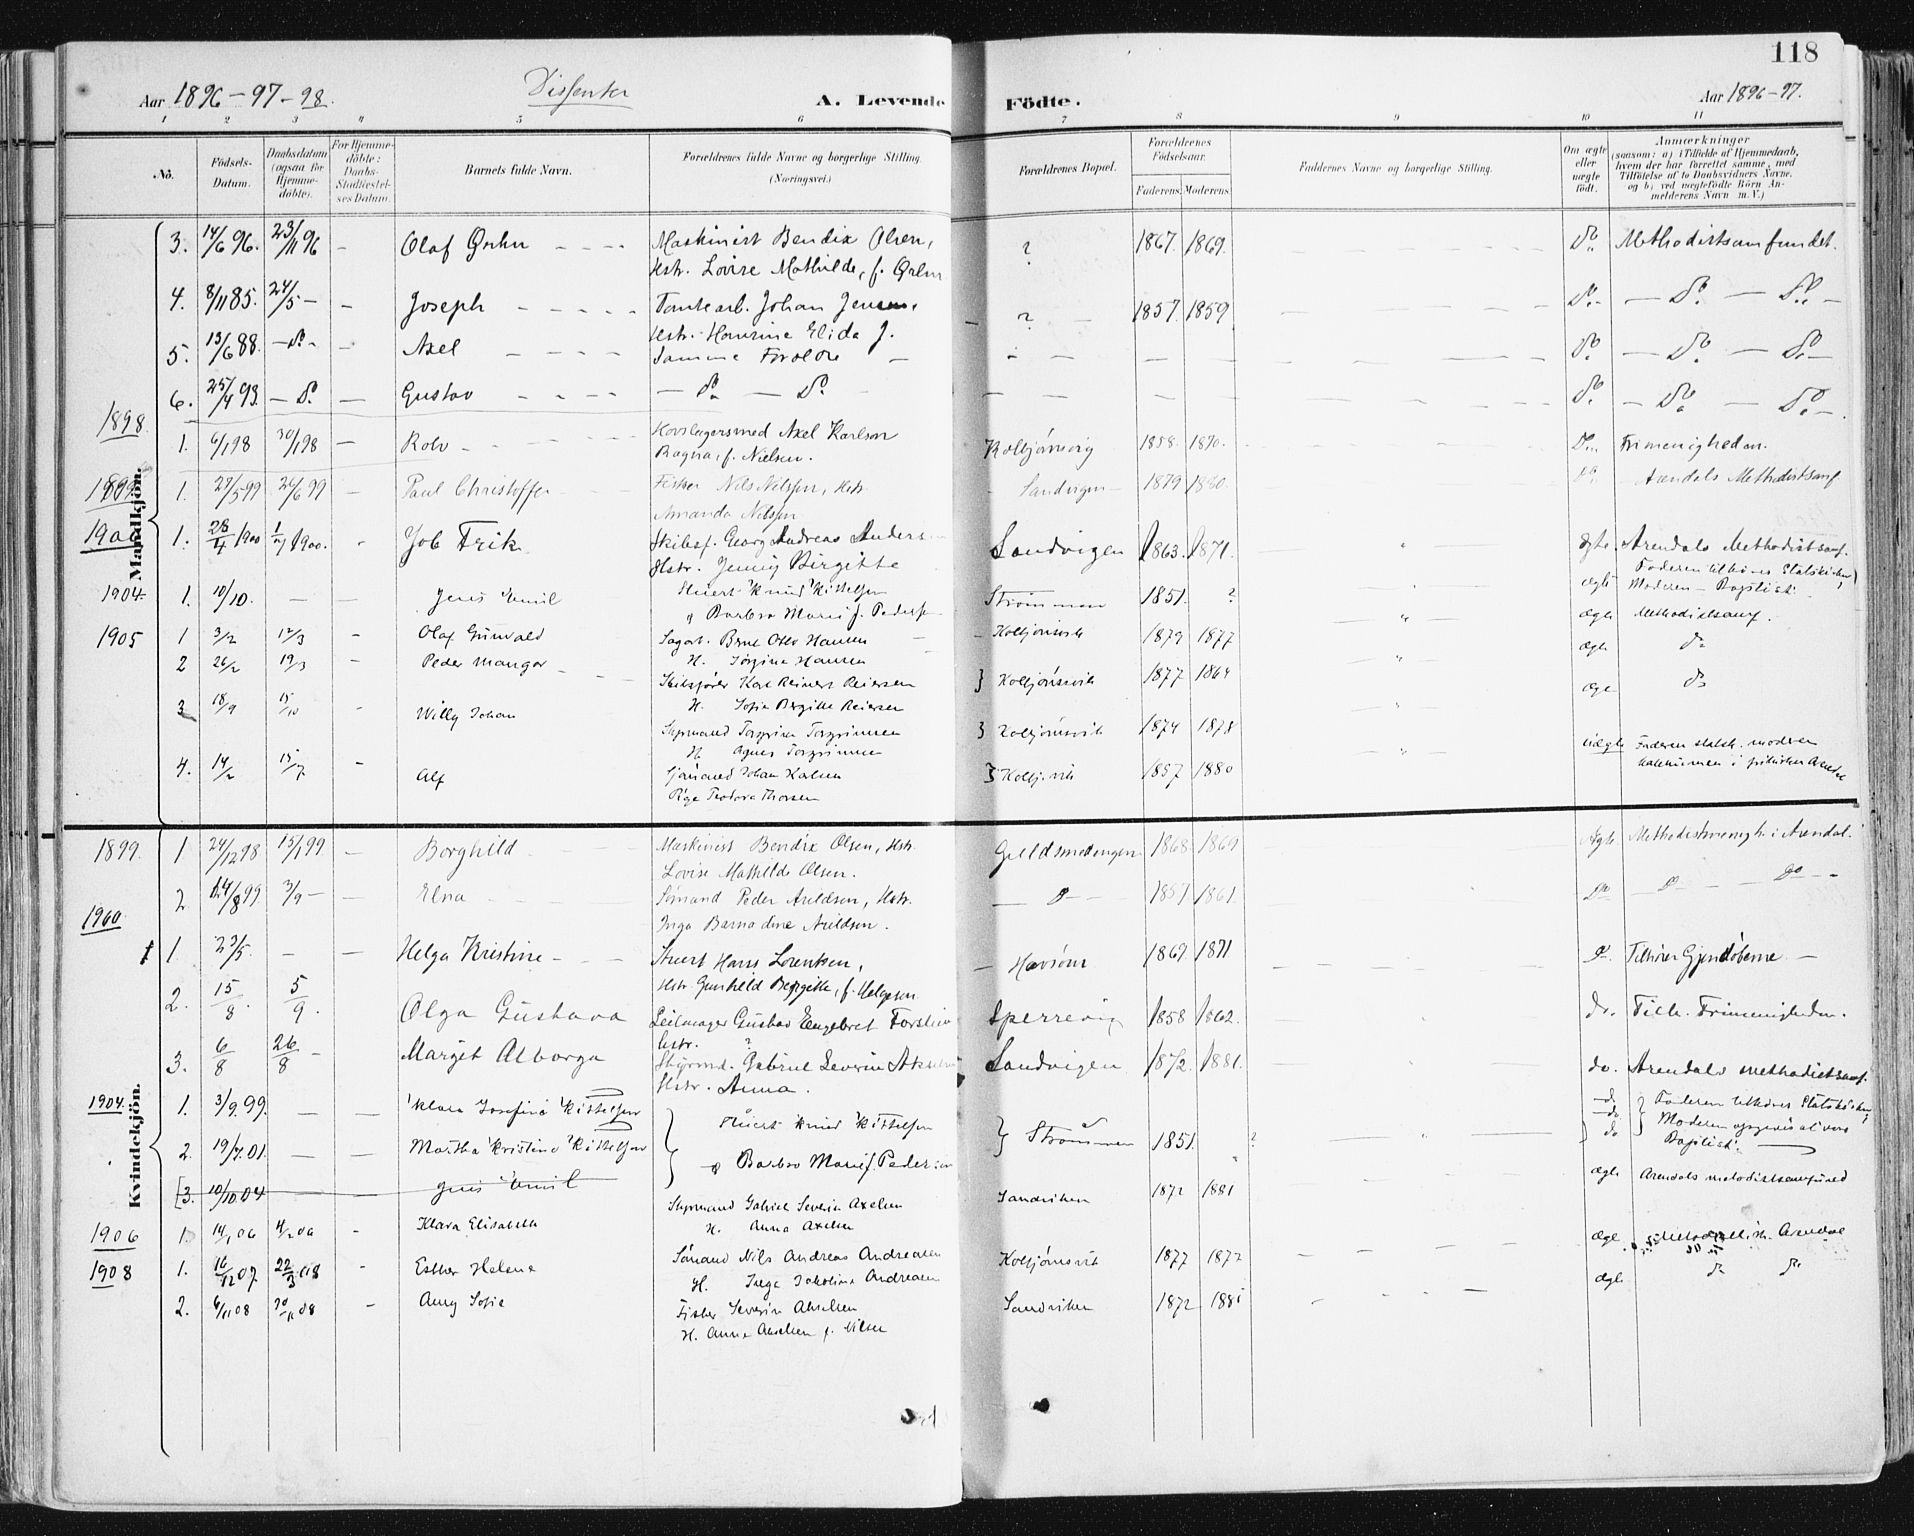 118
Aar 1896-97-98.
Dissenter
A. Levende
Födte.
Aar 1896-97.
1 2 3 4 5 6 7 8 9 10 11
No.
Födsels-Datum.
Daabsdatum (ogsaa for Hjemmedöbte).
For Hjemmedöbte: Daabs-Stadfæstelses Datum.
Barnets fulde Navn.
Forældrenes fulde Navne og borgerlige Stilling.
(Næringsvei.)
Forældrenes Bopæl.
Forældrenes Födselsaar.
Faderens. Moderens.
Faddernes Navne og borgerlige Stilling.
Om ægte eller uægte födt.
Anmærkninger
(saasom: a) i Tilfælde af Hjemmedaab, hvem der har forrettet samme, med Tilföielse af to Daabsvidners Navne, og b) ved uægtefödte Börn Anmelderens Navn m. V.)
Mandkjön.
3. 14/6 96. 23/11 96 - Olaf Maskinist Bendix Olsen, ? 1867. 1869. Do Methodistsamfundet.
Hstr. Lovise Mathilde, f.
4. 8/11 85. 24/5 - - Joseph Johan Jensen, ? 1857. 1859 Do - Do - Do -
Hstr. Elida J.
5. 13/6 88. - Do - - Axel Samme Forældre - Do - Do - Do -
6. 25/4 93. - Do - Gustav - Do - Do Do - Do - Do -
1898.
1. 6/1 98 30/1 98 - Rolv Hovslagersmed Axel Karlson Kolbjörnsvig 1858. 1870. Do Frimenigheden.
Ragna, f. Nielsen.
1899. 1. 27/5 99 26/6 99 - Paul Christoffer Fisker Nils Nilssen, Hstr. Sandvigen 1879 1880. Do Arendals Methodistsamf
Amanda Nilssen
1900 1. 28/4 1900 1/7 1900. Job Erik Skibsf. Georg Andreas Anders Sandvigen 1863. 1871. ægte. Arendals Methodistsamf.
Hstr. Jenny Birgitte
1904. 1. 10/10. - - Jens Emil Stuert Knud Kittelsen Strömmen 1851. ? ægte Faderen tilhörer Statskirken,
Moderen - Baptist.
og Barbro Marie f. Peders
1905 1 3/2 12/3 - Olaf Gunvald Sagarb. Bernt Otto Hansen Kolbjörnsvik 1879 1877 ægte Methodistsamf.
H. Jörgine Hansen
2 26/2 19/3 - Peder Mangor Skibsförer Karl Reinert Reiersen Kolbjörnsvik 1877 1864 ægte do
H. Sofie Bergitte Reiersen
3 18/9 15/10 - Willy Johan Styrmand Torgrim Torgrimsen Kolbjörnsvik 1874 1878 ægte do
H. Agnes Torgrimsen
4. 14/2 15/7 - Alf Sjömand Johan Karlsen Kolbj.vik 1857 1880 uægte Faderen statsk. moderen
i frikirken Arendal
Pige Teodora Thorsen
Kvindekjön.
1899. 1. 24/12 98 15/1 99 - Borghild Maskinist Bendix Olsen, Hstr. 1868. 1869 Ægte Methodistmenigh. i Arendal.
Lovise Mathilde Olsen.
2 24/8 99 3/9 - Elna Sömand Peder Arildsen, Hstr. - Do - 1857 1861. Do - Do - Do -
Inga Arildsen.
1900
1 23/5. - - Helga Kristine Stuert Hans Lorentsen, 1869 1871 Do Tilhörer Gjendöberne -
Hstr. Gunhild Bergitte, f. Helgesen
2. 15/8. 5/9. Olga Gustava Seilmager Gustav Engebret Sperrevig 1858 1862. do. Tilh. Frimenigheden.
Hstr. ?
3. 6/8 26/8 - Marget Alborga Styrmd. Gabriel Severin Sandvigen 1872. 1881. do. Arendals Methodistsamf.
Hstr. Anna.
1904. 1. 3/9. 99. - - Klara Josefine Kittelsen Stuert Knud Kittelsen Strömmen 1851. ? do Faderen tilhörer Statskirken,
Moderen opgives at være
Baptist.
2. 19/7. 01. - - Martha Kristine Kittelsen og Barbro Marie f. Pedersen do
[3. 10/10 04 - - Jens Emil
1906 1. 14/1 06 4/2 06 - Klara Elisabeth Styrmand Gabriel Severin Axelsen Sandviken 1872 1881 ægte Arendals metodistsamfund
H. Anna Axelsen
1908 1. 16/12 07 22/3 08 - Esther Helene Sömand Nils Andreas Andreasen Kolbjörnsvik 1877 1872 ægte Arendal
H. Inga Jakobine Andreasen
2. 6/11 08 - Anny Sofie Fisker Severin Akselsen Sandviken 1872 1881 ægte do do
H. Anna Akselsen f. Nilsen